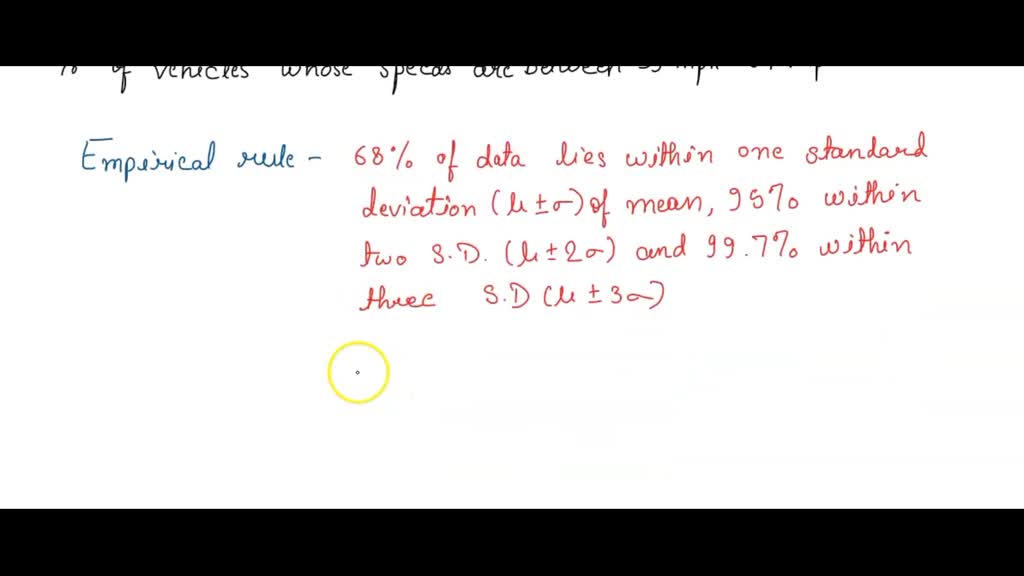 % of vehicles whose speeds are between
Empirical rule - 68% of data lies within one standard
deviation (μ ± σ) of mean, 95% within
two S.D. (μ ± 2σ) and 99.7% within
three S.D (μ ± 3σ)